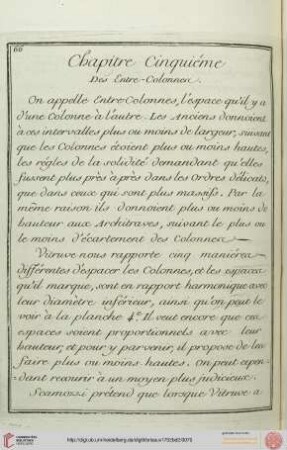 66
Chapitre Cinquiéme
Des Entre-Colonnes.
On appelle Entre-Colonnes, l'espace qu'il y a
d'une Colonne à l'autre. Les Anciens donnoient
à ces intervalles plus ou moins de largeur, suivant
que les Colonnes étoient plus ou moins hautes,
les régles de la solidité demandant qu'elles
fussent plus près à près dans les Ordres délicats,
que dans ceux qui sont plus massifs. Par la
même raison ils donnoient plus ou moins de
hauteur aux Architraves, suivant le plus ou
le moins d'écartement des Colonnes.
Vitruve nous rapporte cinq manieres
differentes d'espacer les Colonnes, et les espaces
qu'il marque, sont en rapport harmonique avec
leur diamètre inférieur, ainsi qu'on peut le
voir à la planche 4.e Il veut encore que ces
espaces soient proportionnels avec leur
hauteur, et pour y parvenir, il propose de les
faire plus ou moins hautes. On peut cepen-
dant recourir à un moyen plus judicieux.
Scamozzi prétend que lorsque Vitruve a